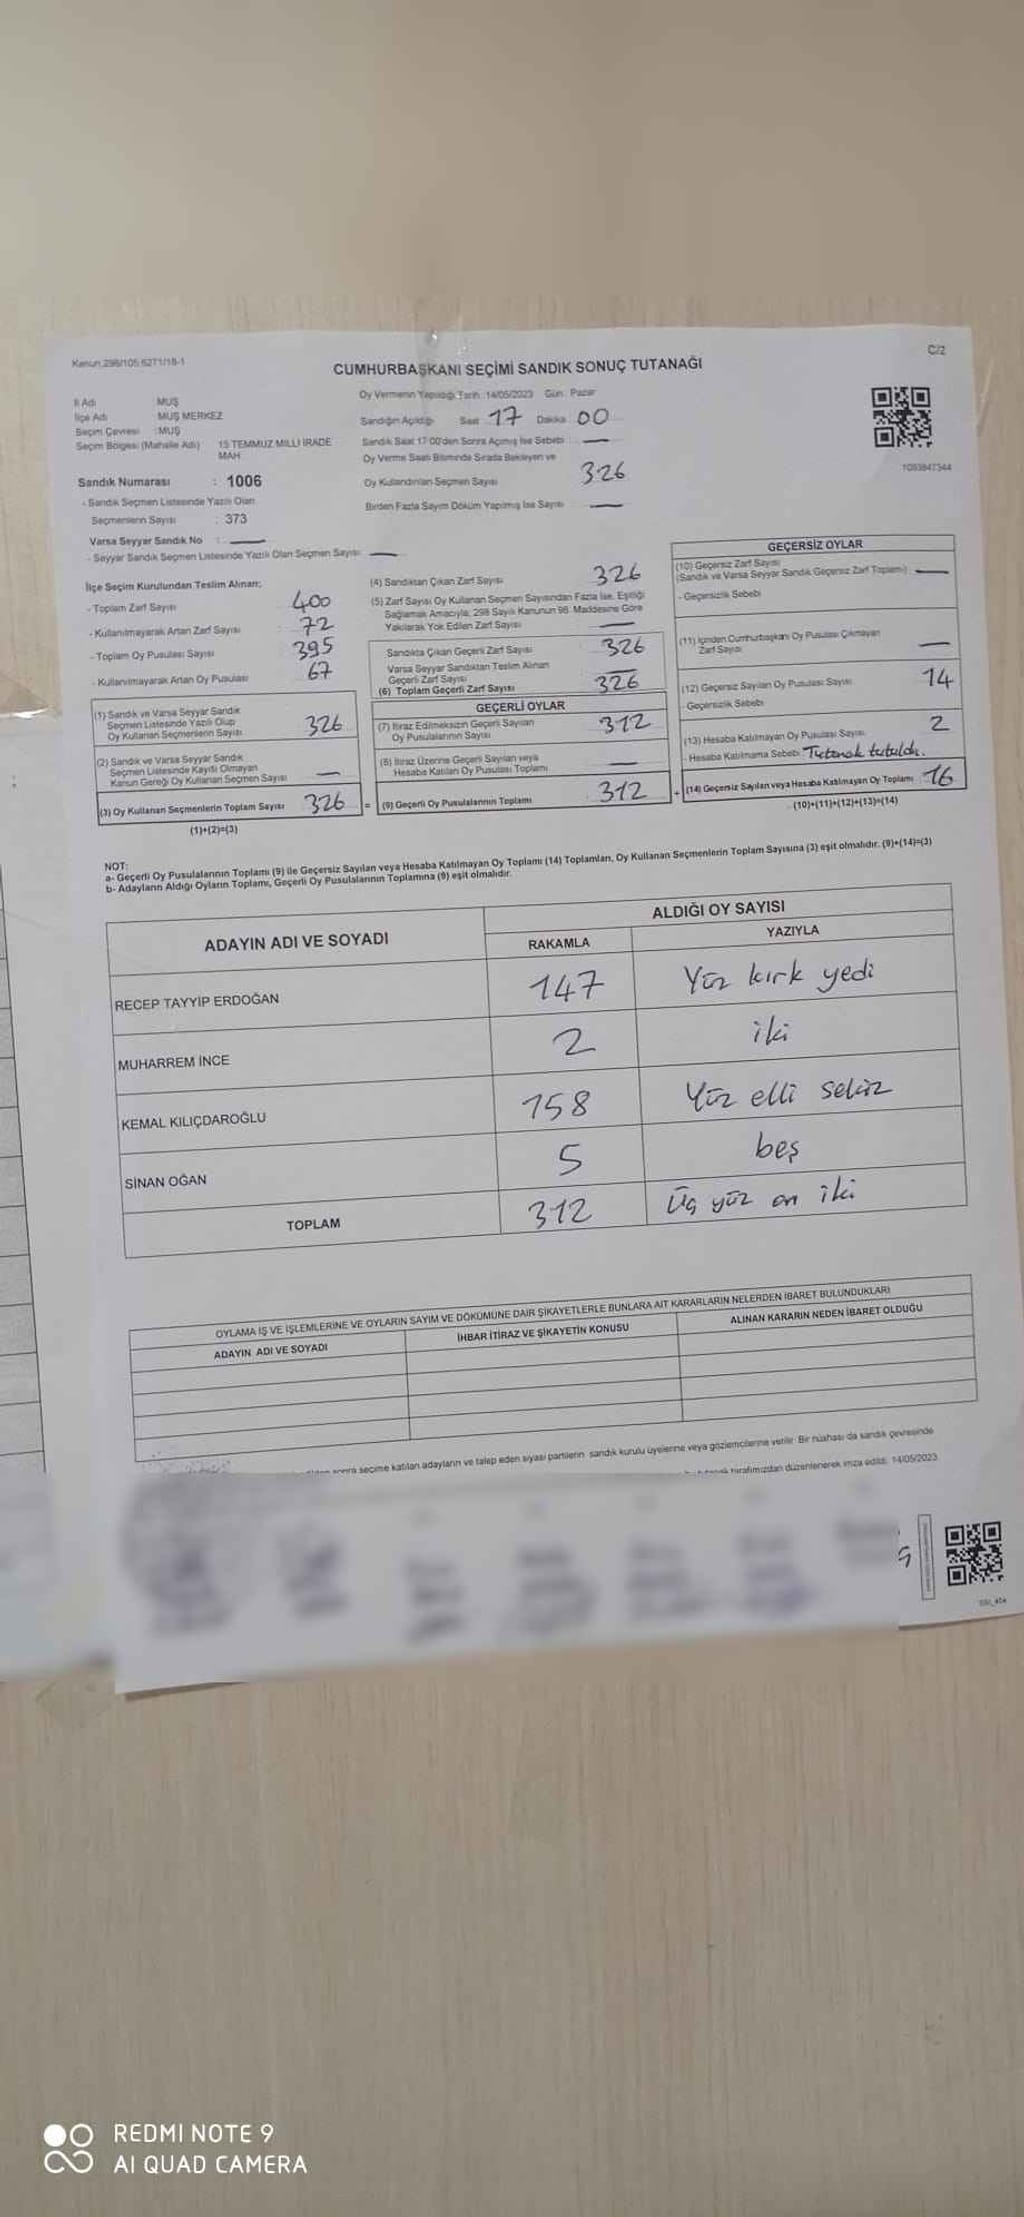 Kanun:298/105;6271/18-1
C/2
CUMHURBAŞKANI SEÇİMİ SANDIK SONUÇ TUTANAĞI
Oy Vermenin Yapıldığı Tarih: 14/05/2023 Gün: Pazar
İl Adı MUŞ
İlçe Adı MUŞ MERKEZ
Seçim Çevresi :MUŞ
Seçim Bölgesi (Mahalle Adı) 15 TEMMUZ MİLLİ İRADE
MAH
Sandığın Açıldığı Saat 17 Dakika 00
Sandık Saat 17:00'den Sonra Açılmış İse Sebebi : —
Oy Verme Saati Bitiminde Sırada Bekleyen ve
Oy Kullandırılan Seçmen Sayısı 326
Birden Fazla Sayım Döküm Yapılmış İse Sayısı —
Sandık Numarası : 1006
- Sandık Seçmen Listesinde Yazılı Olan
Seçmenlerin Sayısı : 373
Varsa Seyyar Sandık No : —
- Seyyar Sandık Seçmen Listesinde Yazılı Olan Seçmen Sayısı —
İlçe Seçim Kurulundan Teslim Alınan;
- Toplam Zarf Sayısı 400
- Kullanılmayarak Artan Zarf Sayısı 72
- Toplam Oy Pusulası Sayısı 395
- Kullanılmayarak Artan Oy Pusulası 67
(1) Sandık ve Varsa Seyyar Sandık
Seçmen Listesinde Yazılı Olup
Oy Kullanan Seçmenlerin Sayısı 326
(2) Sandık ve Varsa Seyyar Sandık
Seçmen Listesinde Kayıtlı Olmayan
Kanun Gereği Oy Kullanan Seçmen Sayısı —
(3) Oy Kullanan Seçmenlerin Toplam Sayısı 326 =
(1)+(2)=(3)
(4) Sandıktan Çıkan Zarf Sayısı 326
(5) Zarf Sayısı Oy Kullanan Seçmen Sayısından Fazla İse, Eşitliği
Sağlamak Amacıyla, 298 Sayılı Kanunun 98. Maddesine Göre
Yakılarak Yok Edilen Zarf Sayısı —
Sandıkta Çıkan Geçerli Zarf Sayısı 326
Varsa Seyyar Sandıktan Teslim Alınan
Geçerli Zarf Sayısı —
(6) Toplam Geçerli Zarf Sayısı 326
GEÇERLİ OYLAR
(7) İtiraz Edilmeksizin Geçerli Sayılan
Oy Pusulalarının Sayısı 312
(8) İtiraz Üzerine Geçerli Sayılan veya
Hesaba Katılan Oy Pusulası Toplamı —
(9) Geçerli Oy Pusulalarının Toplamı 312 +
GEÇERSİZ OYLAR
(10) Geçersiz Zarf Sayısı
(Sandık ve Varsa Seyyar Sandık Geçersiz Zarf Toplamı) —
- Geçersizlik Sebebi
(11) İçinden Cumhurbaşkanı Oy Pusulası Çıkmayan
Zarf Sayısı —
(12) Geçersiz Sayılan Oy Pusulası Sayısı 14
- Geçersizlik Sebebi
(13) Hesaba Katılmayan Oy Pusulası Sayısı 2
- Hesaba Katılmama Sebebi Tutanak tutuldu.
(14) Geçersiz Sayılan veya Hesaba Katılmayan Oy Toplamı 16
(10)+(11)+(12)+(13)=(14)
NOT:
a- Geçerli Oy Pusulalarının Toplamı (9) ile Geçersiz Sayılan veya Hesaba Katılmayan Oy Toplamı (14) Toplamları, Oy Kullanan Seçmenlerin Toplam Sayısına (3) eşit olmalıdır. (9)+(14)=(3)
b- Adayların Aldığı Oyların Toplamı, Geçerli Oy Pusulalarının Toplamına (9) eşit olmalıdır.
ADAYIN ADI VE SOYADI
ALDIĞI OY SAYISI
RAKAMLA YAZIYLA
RECEP TAYYİP ERDOĞAN 147 Yüz kırk yedi
MUHARREM İNCE 2 iki
KEMAL KILIÇDAROĞLU 158 Yüz elli sekiz
SİNAN OĞAN 5 beş
TOPLAM 312 Üç yüz on iki
OYLAMA İŞ VE İŞLEMLERİNE VE OYLARIN SAYIM VE DÖKÜMÜNE DAİR ŞİKAYETLERLE BUNLARA AİT KARARLARIN NELERDEN İBARET BULUNDUKLARI
ADAYIN ADI VE SOYADI İHBAR İTİRAZ VE ŞİKAYETİN KONUSU ALINAN KARARIN NEDEN İBARET OLDUĞU
sonra seçime katılan adayların ve talep eden siyasi partilerin sandık kurulu üyelerine veya gözlemcilerine verilir. Bir nüshası da sandık çevresinde
tarafımızdan düzenlenerek imza edildi. 14/05/2023
REDMI NOTE 9
AI QUAD CAMERA